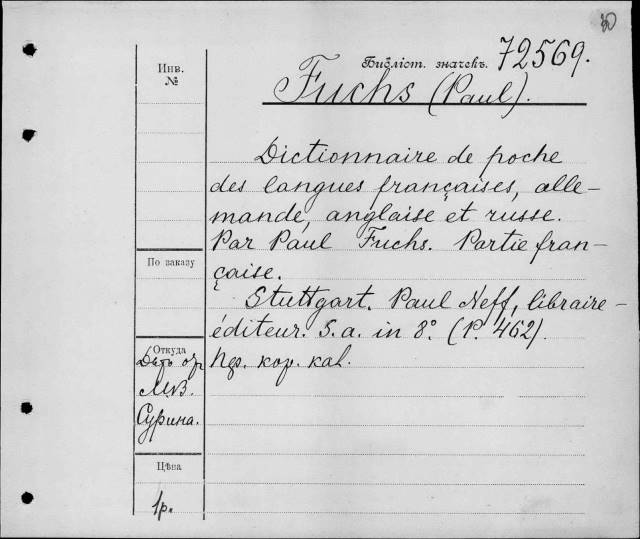 30
Библіот. значекъ. 72569.
Инв.
№
Fuchs (Paul).
Dictionnaire de poche
des langues françaises, alle-
mande, anglaise et russe.
Par Paul Fuchs. Partie fran-
çaise.
По заказу
Stuttgart. Paul Neff, libraire-
éditeur. S. a. in 8°. (P. 462).
Откуда
М.В.
Сурина.
кор. kal.
Цѣна
1р.